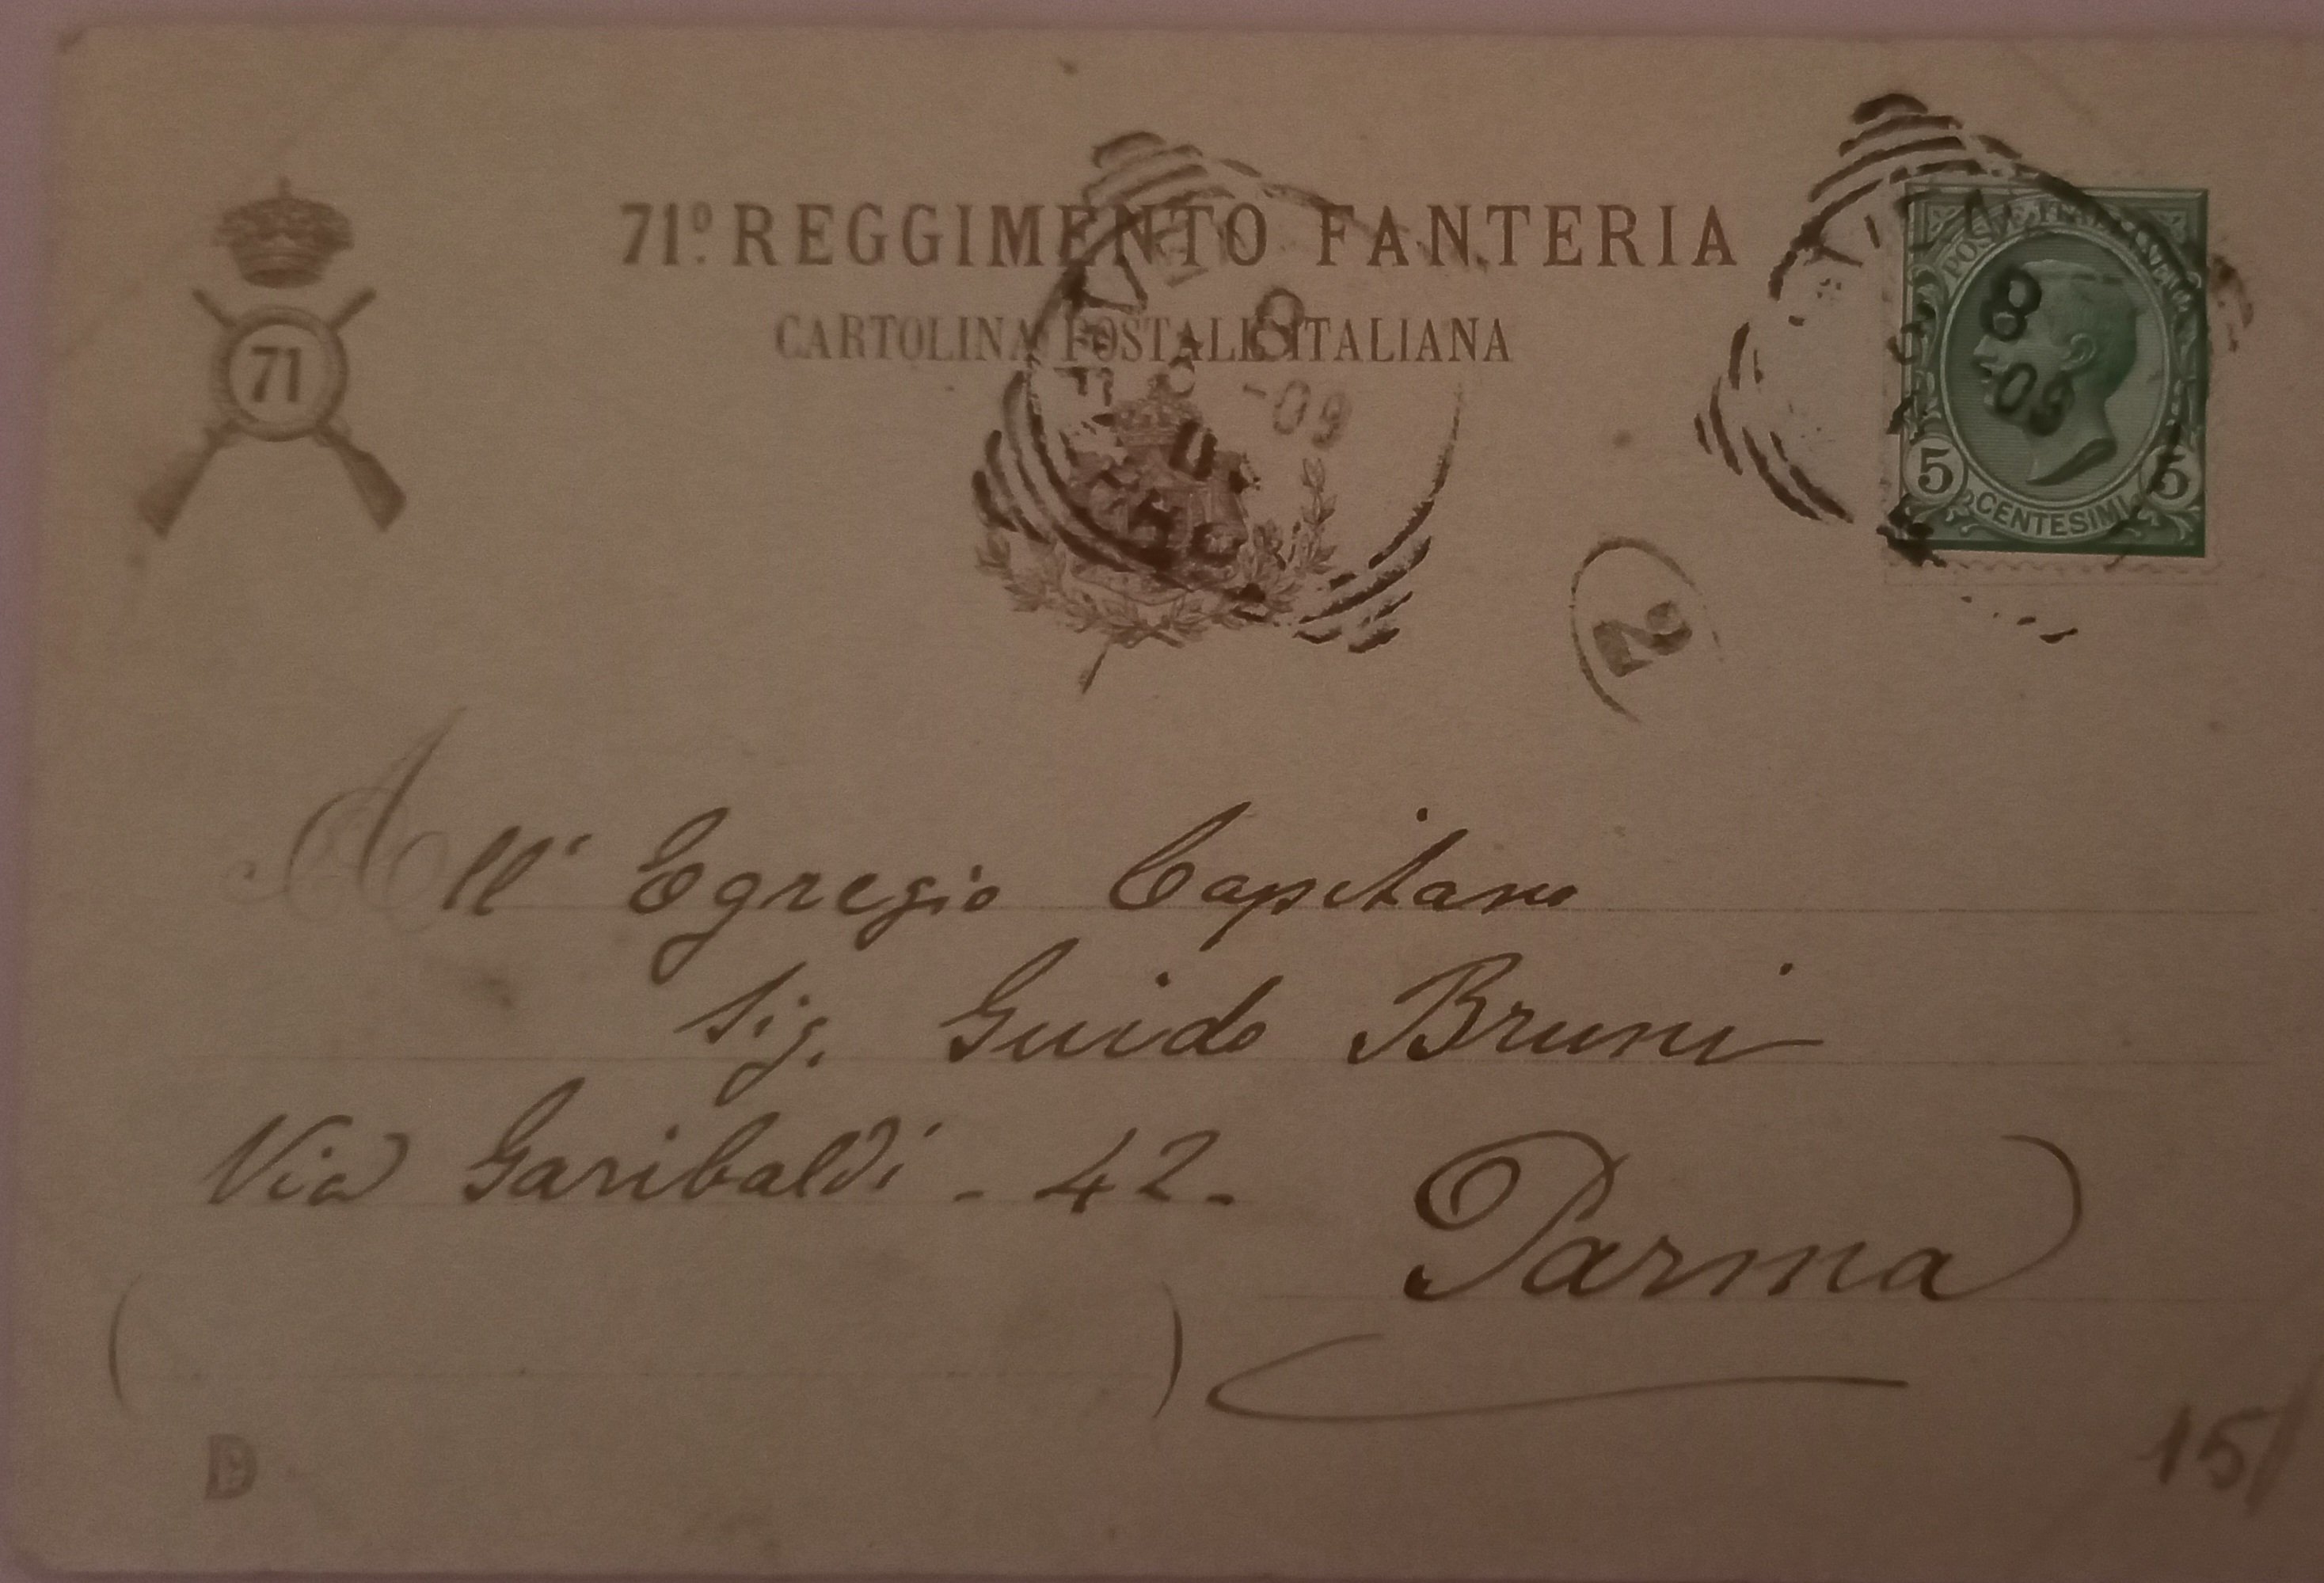 71º REGGIMENTO FANTERIA
CARTOLINA POSTALE ITALIANA
71
8
-09
8
09
5
5
CENTESIMI
2
All' Egregio Capitano
Sig. Guido Bruni
Via Garibaldi - 42 -
Parma
D
15/